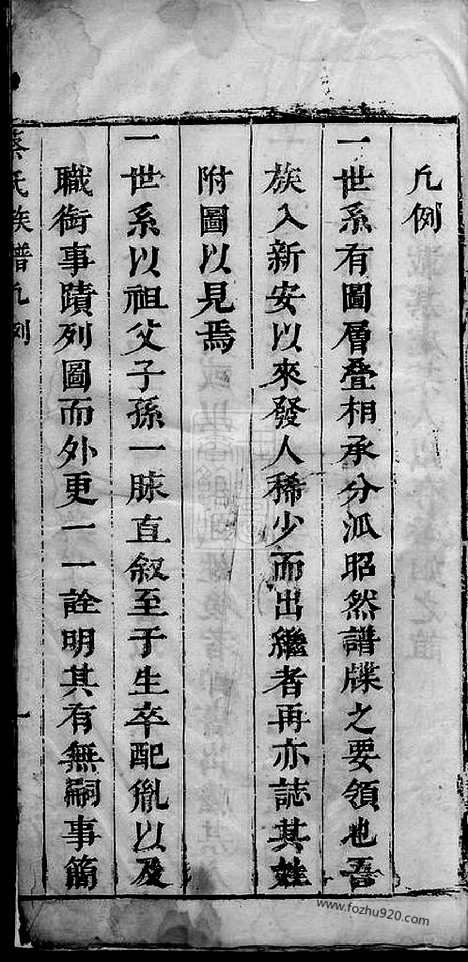 凡例
一世系有圖層叠相承分派昭然譜牒之要領也吾
族入新安以來發人稀少而出繼者再亦誌其姓
附圖以見焉
一世系以祖父子孫一脉直叙至于生卒配胤以及
職銜事蹟列圖而外更一一詮明其有無嗣事簡
蔡氏族譜凡例
一
www.fozhu920.com